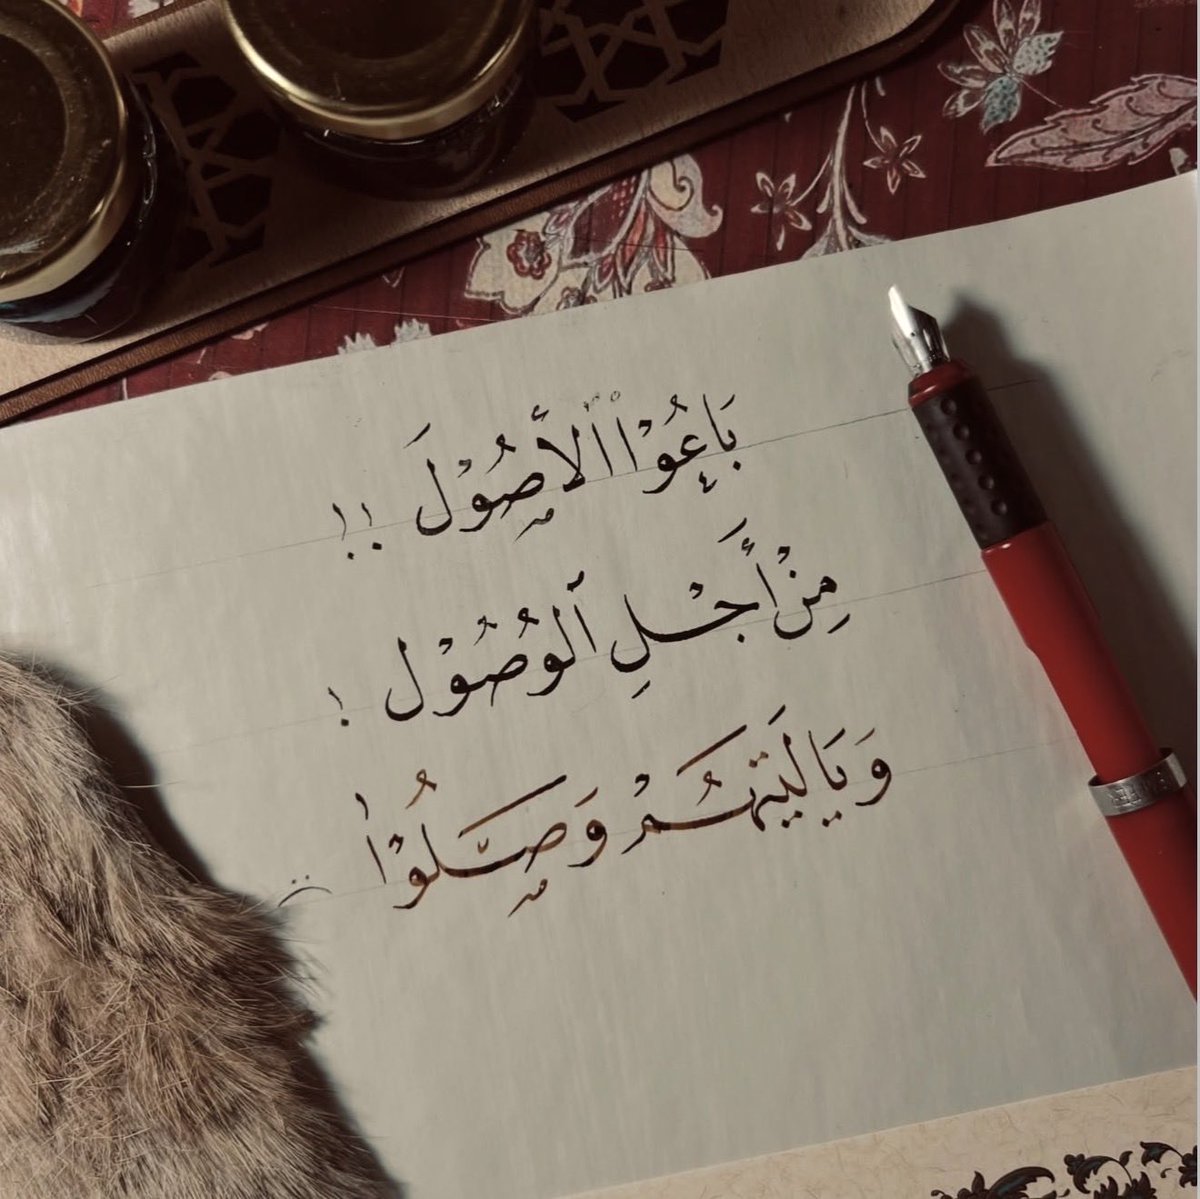 بَاعُوْا الأُصُوْلَ !!
مِنْ أَجْلِ ٱلوُصُوْل !
وَيَا لَيتَهُمْ وَصَلُوْا